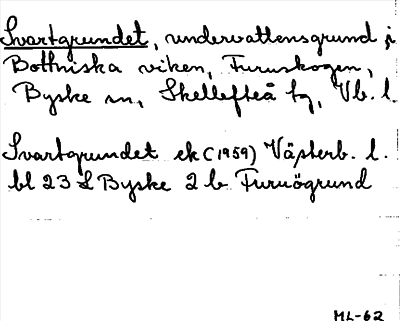 Svartgrundet, undervattensgrund i
Bottniska viken, Furuskogen,
Byske sn, Skellefteå tg, Vb. l.
Svartgrundet ek (1959) Västerb. l.
bl 23 L Byske 2 b Furuögrund
ML-62